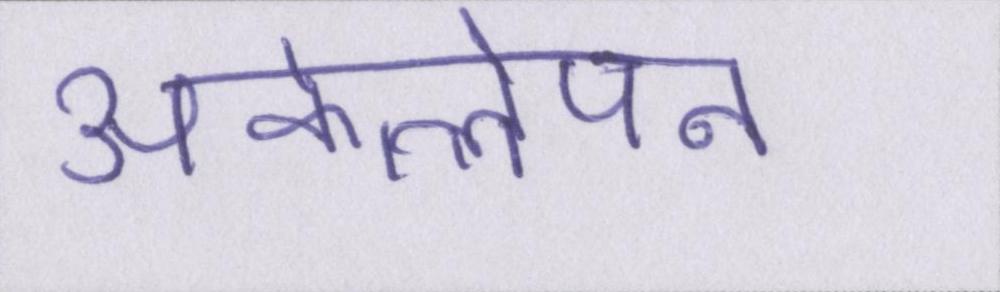 अकेलेपन